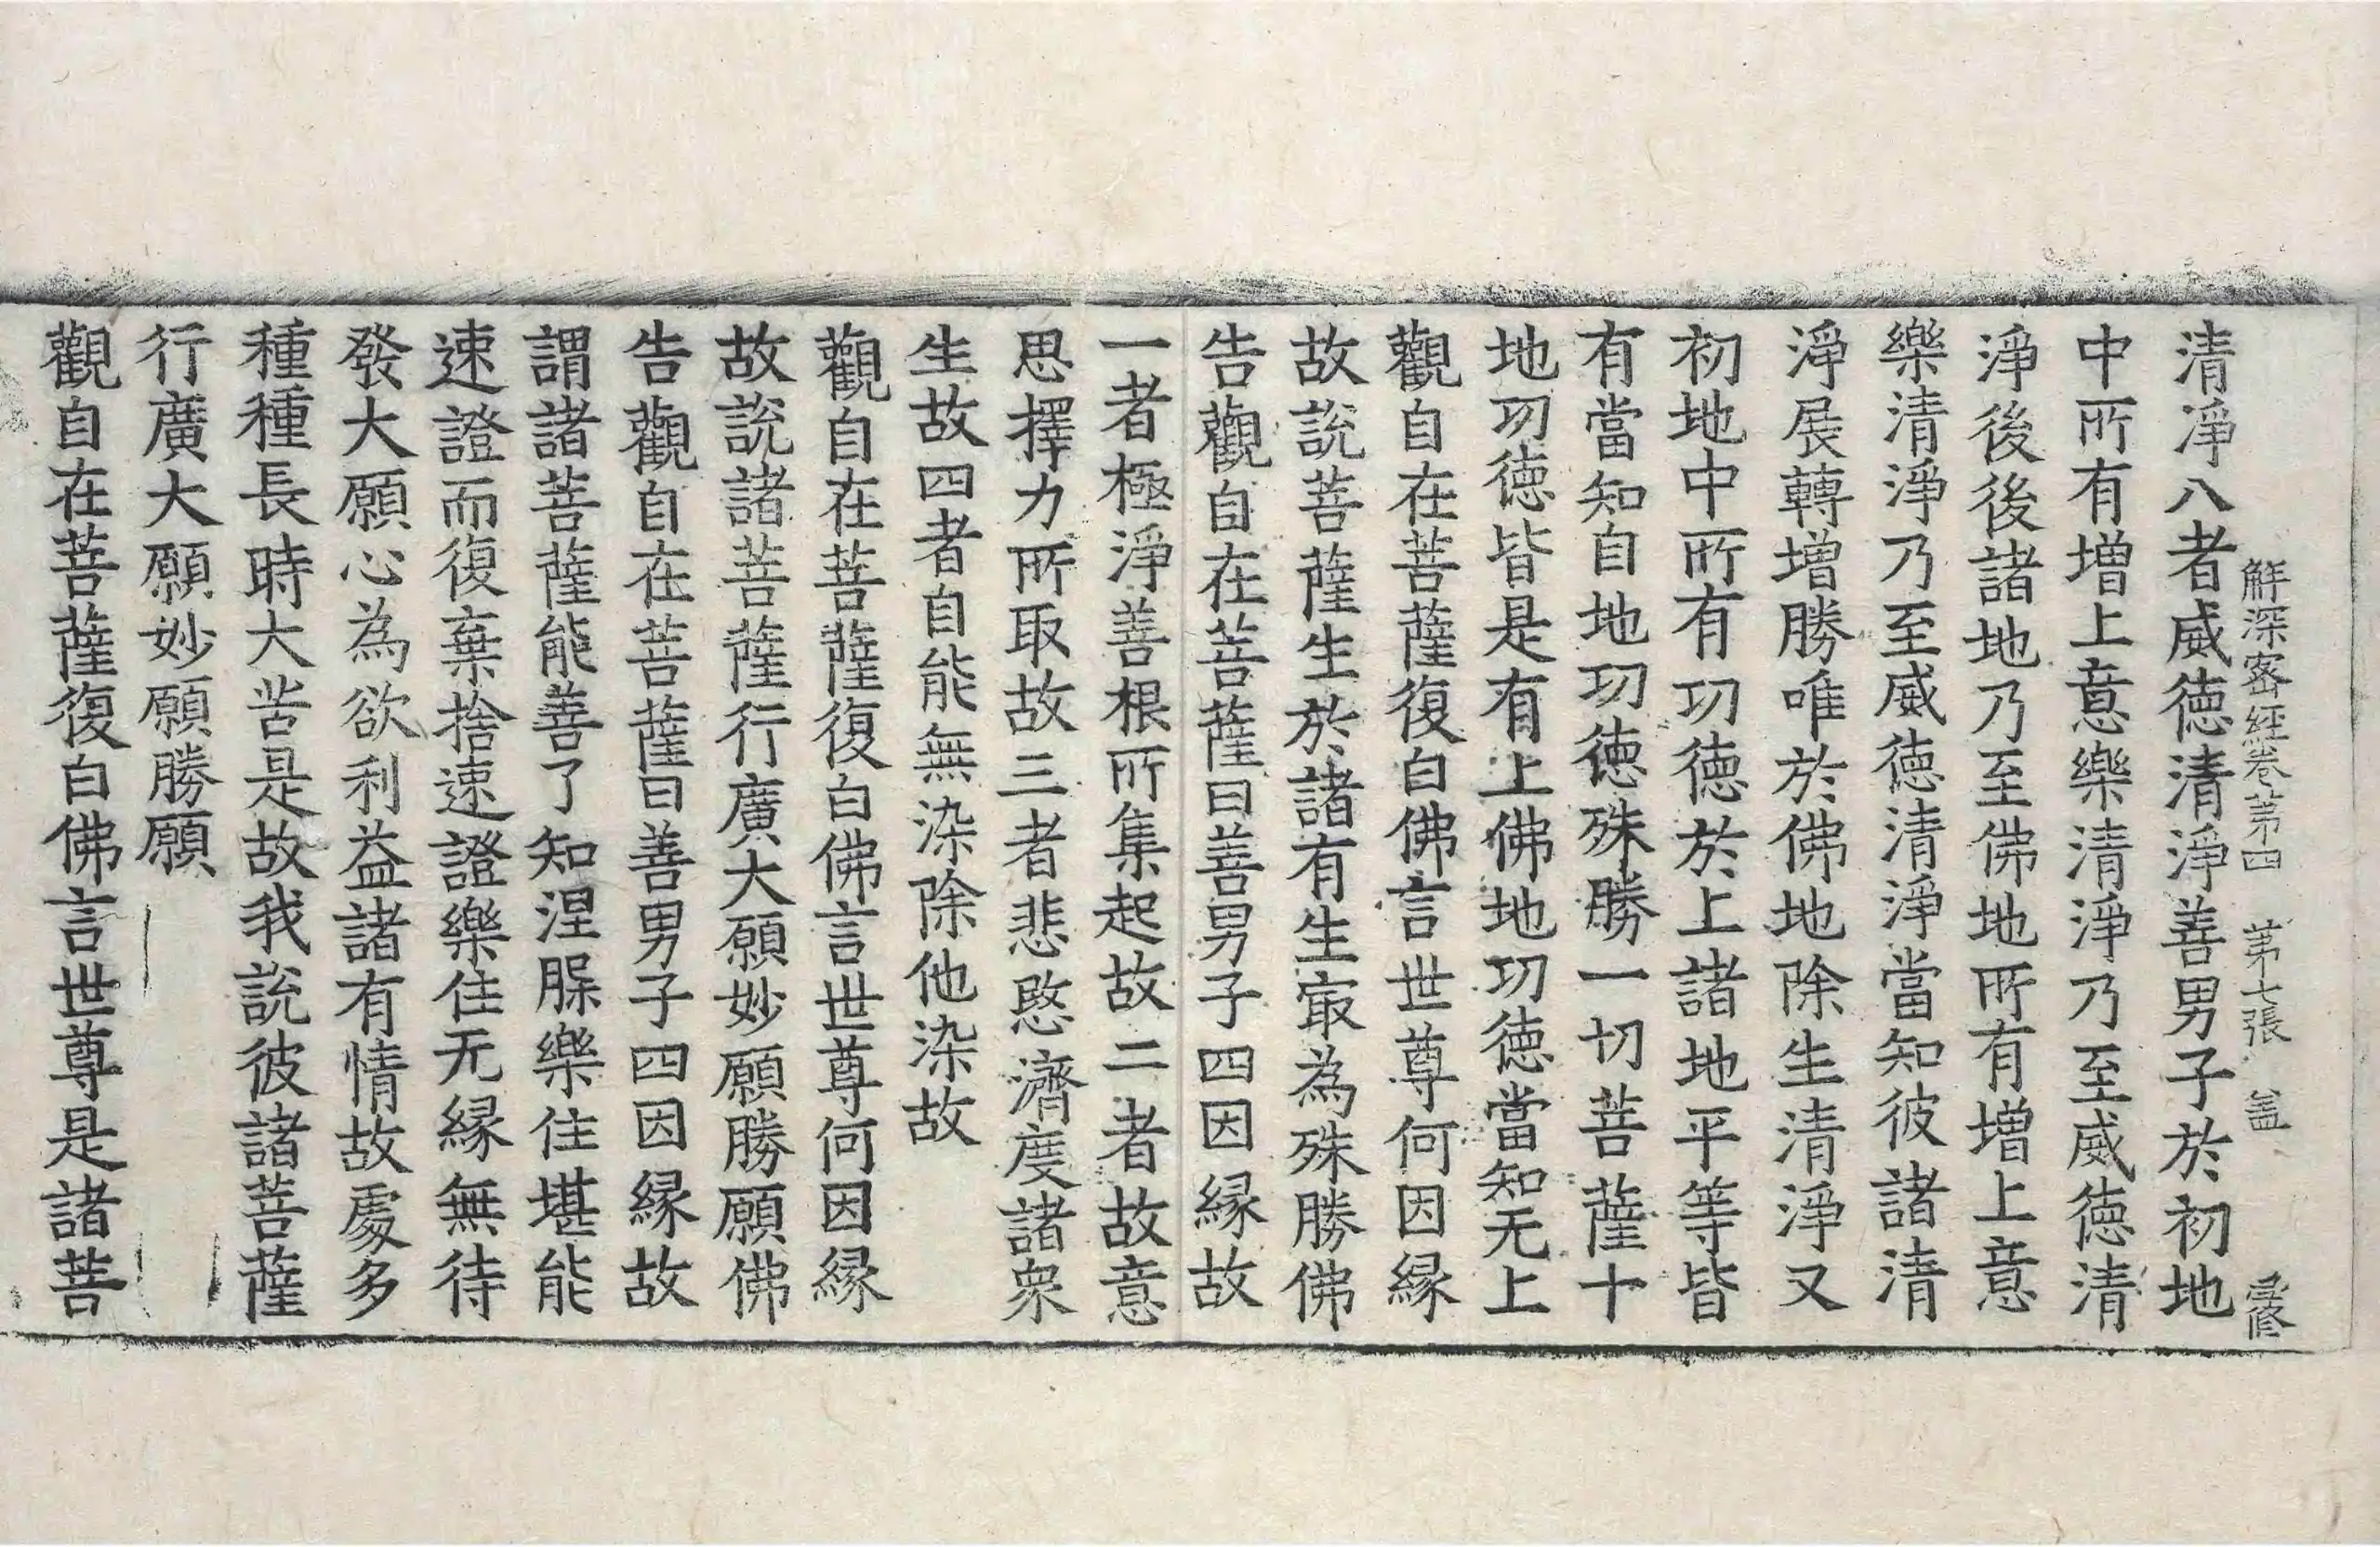 解深密經卷苐四 苐七張 盖
清淨八者威徳清淨善男子於初地
中所有增上意樂清淨乃至威徳清
淨後後諸地乃至佛地所有增上意
樂清淨乃至威徳清淨當知彼諸清
淨展轉增勝唯於佛地除生清淨又
初地中所有㓛徳於上諸地平等皆
有當知自地㓛徳殊勝一切菩薩十
地㓛徳皆是有上佛地㓛徳當知无上
觀自在菩薩復白佛言世尊何因縁
故說菩薩生於諸有生㝡為殊勝佛
告觀自在菩薩曰善男子四因縁故
一者極淨善根所集起故二者故意
思擇力所取故三者悲愍濟度諸衆
生故四者自能無染除他染故
觀自在菩薩復白佛言世尊何因縁
故說諸菩薩行廣大願妙願勝願佛
告觀自在菩薩曰善男子四因縁故
謂諸菩薩能善了知涅槃樂住堪能
速證而復棄捨速證樂住无縁無待
發大願心為欲利益諸有情故處多
種種長時大苦是故我說彼諸菩薩
行廣大願妙願勝願
觀自在菩薩復白佛言世尊是諸菩